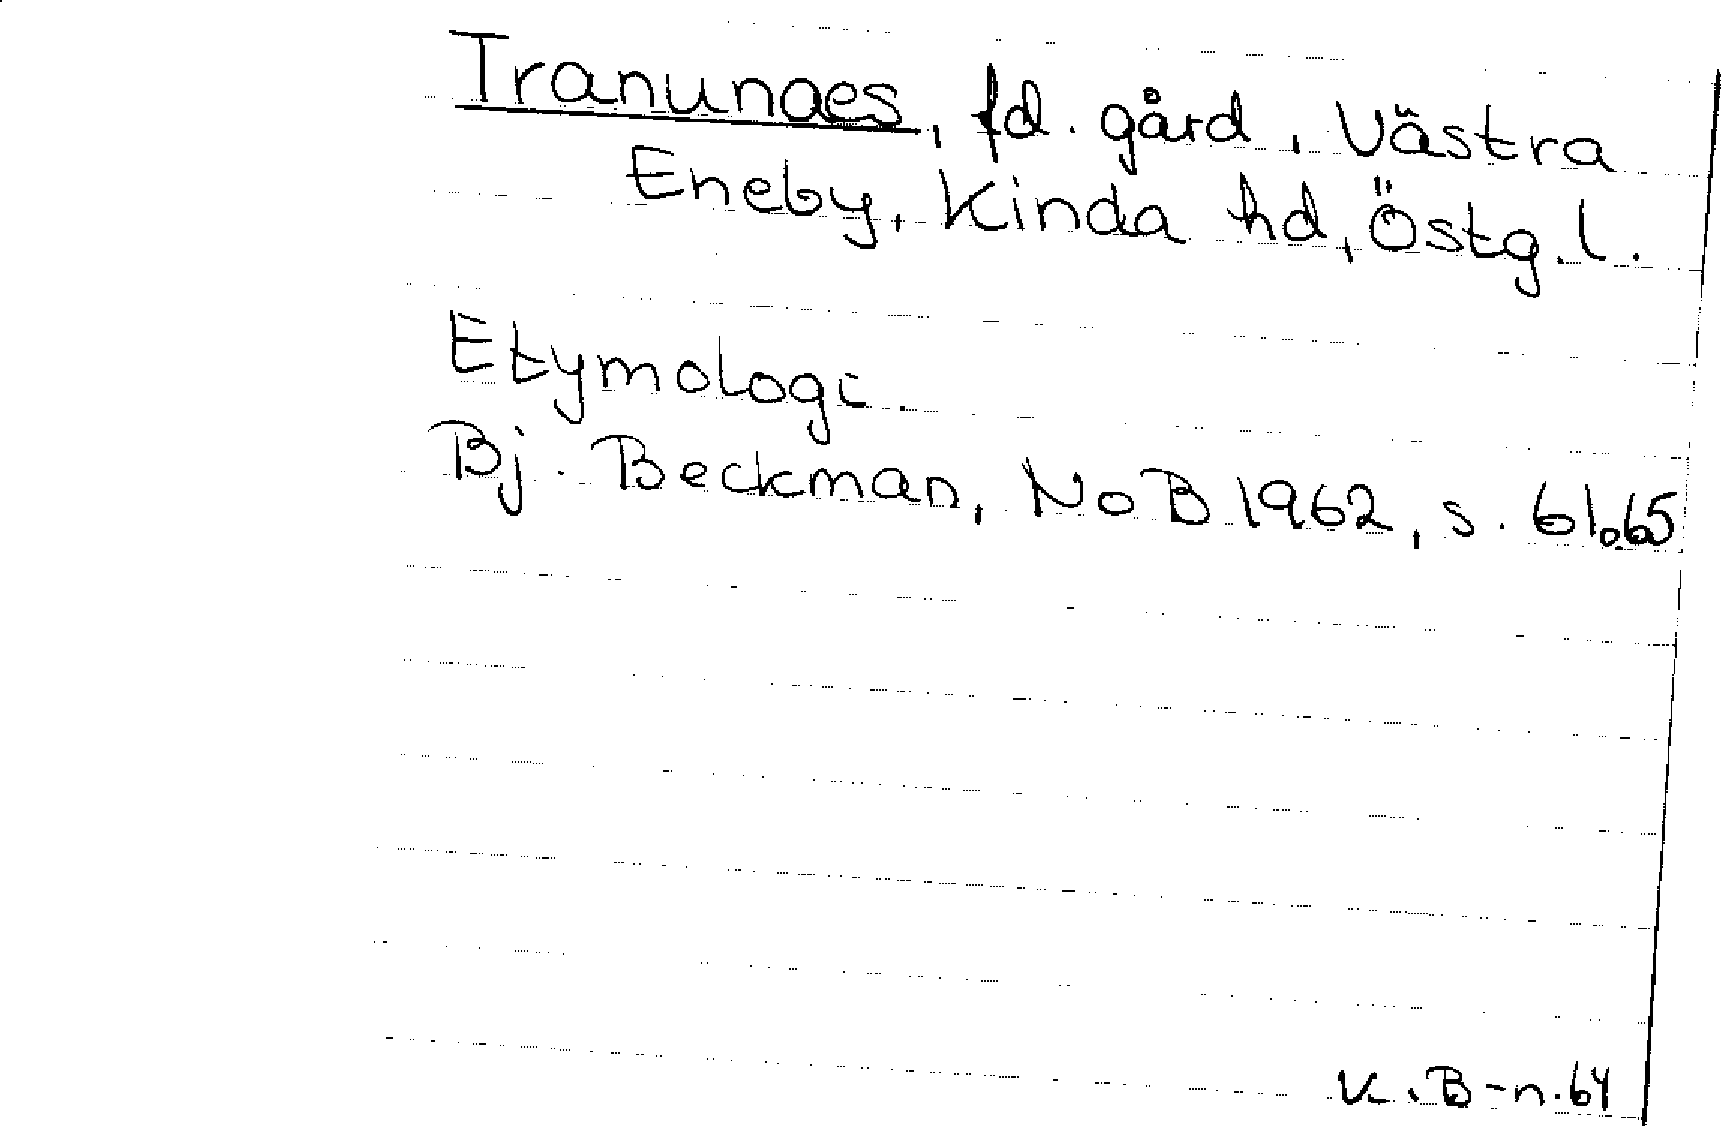 Tranunaes, fd. gård, Västra
Eneby, Kinda hd, Östg.l.
Etymologi.
Bj. Beckman, NoB 1962, s. 61o.65
V. B-n. 64